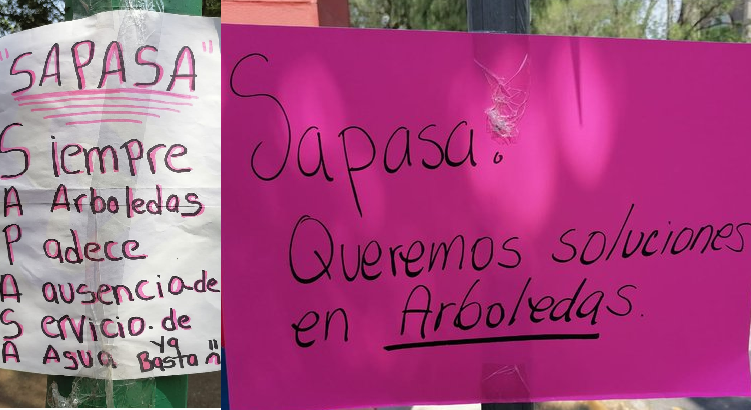 "SAPASA"
Siempre
A Arboledas
P adece
A ausencia de
S ervicio. de
A Agua ya Basta"
Sapasa.
Queremos soluciones
en Arboledas.